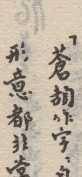 「蒼頡作字、
形意都非常